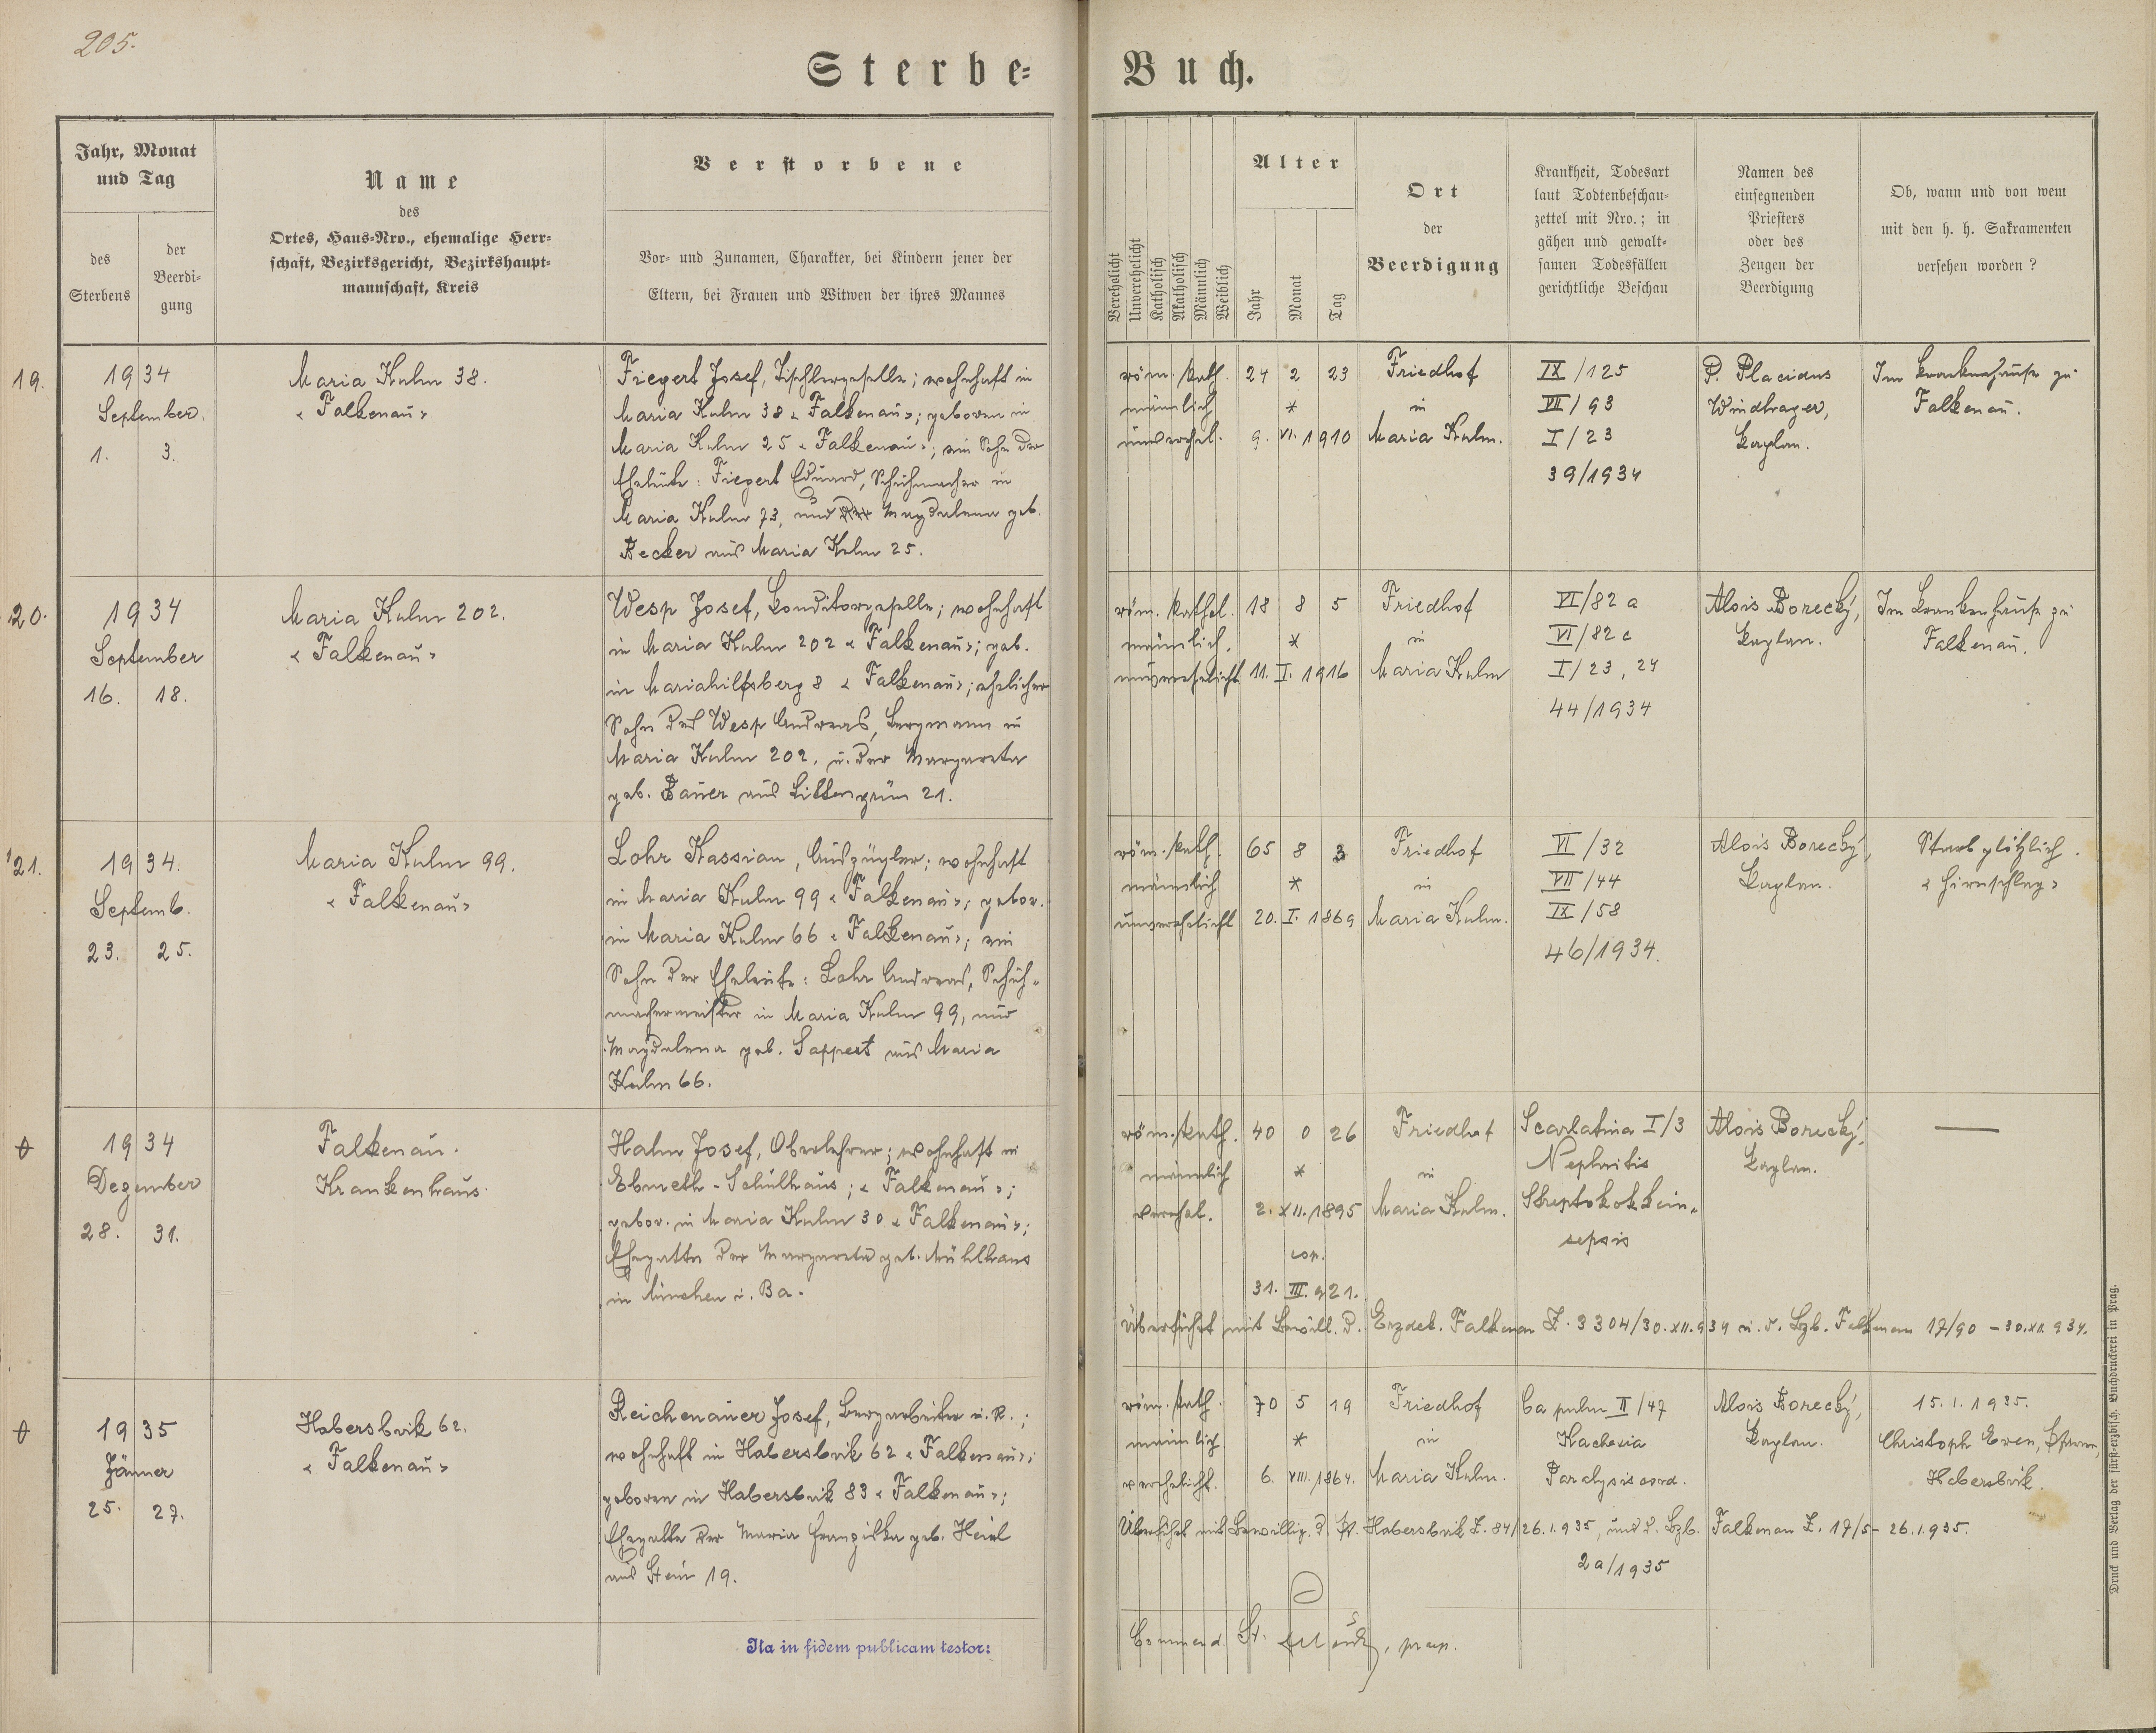 205.
Sterbe-Buch.
Jahr, Monat
und Tag
des
Sterbens
der
Beerdi-
gung
Name
des
Ortes, Haus-Nro., ehemalige Herr-
schaft, Bezirksgericht, Bezirkshaupt-
mannschaft, Kreis
Verstorbene
Vor- und Zunamen, Charakter, bei Kindern jener der
Eltern, bei Frauen und Witwen der ihres Mannes
Verehelicht
Unverehelicht
Katholisch
Akatholisch
Männlich
Weiblich
Alter
Jahr
Monat
Tag
Ort
der
Beerdigung
Krankheit, Todesart
laut Todtenbeschau-
zettel mit Nro.; in
gähen und gewalt-
samen Todesfällen
gerichtliche Beschau
Namen des
einsegnenden
Priesters
oder des
Zeugen der
Beerdigung
Ob, wann und von wem
mit den h. h. Sakramenten
versehen worden?
19.
1934
September.
1. 3.
Maria Kulm 38.
"Falkenau"
Fiegert Josef, Tischlergeselle; wohnhaft in
Maria Kulm 38 "Falkenau"; geboren in
Maria Kulm 25 "Falkenau"; ein Sohn der
Eheleute: Fiegert Eduard, Schuhmacher in
Maria Kulm 73, und Magdalena geb.
Becker aus Maria Kulm 25.
röm. kath. 24 2 23
männlich *
unverehel. 9. VI. 1910
Friedhof
in
Maria Kulm.
IX/125
VII/93
I/23
39/1934
P. Placidus
Windhager,
Kaplan.
Im Krankenhause zu
Falkenau.
20.
1934
September
16. 18.
Maria Kulm 202.
"Falkenau"
Wesp Josef, Konditorgeselle; wohnhaft
in Maria Kulm 202 "Falkenau"; geb.
in Mariahilfsberg 8 "Falkenau"; ehelicher
Sohn des Wesp Andreas, Bergmann in
Maria Kulm 202, u. der Margareta
geb. Bauer aus Littengrün 21.
röm. kathol. 18 8 5
männlich. *
unverehelicht 11. I. 1916
Friedhof
in
Maria Kulm
VI/82 a
VI/82 c
I/23, 24
44/1934
Alois Borecký,
Kaplan.
Im Krankenhause zu
Falkenau.
21.
1934.
Septemb.
23. 25.
Maria Kulm 99.
"Falkenau"
Lohr Kassian, Auszügler; wohnhaft
in Maria Kulm 99 "Falkenau"; gebor.
in Maria Kulm 66 "Falkenau"; ein
Sohn der Eheleute: Lohr Andreas, Schuh-
machermeister in Maria Kulm 99, und
Magdalena geb. Sappert aus Maria
Kulm 66.
röm. kath. 65 8 3
männlich *
unverehelicht 20. I. 1869
Friedhof
in
Maria Kulm.
VI/32
VII/44
IX/58
46/1934.
Alois Borecký,
Kaplan.
Starb plötzlich.
"Hirnschlag"
1934
Dezember
28. 31.
Falkenau.
Krankenhaus.
Hahn Josef, Oberlehrer; wohnhaft in
Ebmeth - Schulhaus; "Falkenau";
gebor. in Maria Kulm 30 "Falkenau";
Ehegatte der Margareta geb. Mühlhans
in München i. Ba.
röm. kath. 40 0 26
männlich *
verehel. 2. XII. 1895
cop.
31. III. 921.
Friedhof
in
Maria Kulm.
Scarlatina I/3
Nephritis
Streptokokkein-
sepsis
Alois Borecký,
Kaplan.
Überführt mit Bewill. d. Erzdek. Falkenau Z. 3304/30.XII.934 u. d. Bzb. Falkenau 17/90 - 30.XII.934.
1935
Jänner
25. 27.
Habersbirk 62.
"Falkenau"
Reichenauer Josef, Bergarbeiter i. R.;
wohnhaft in Habersbirk 62 "Falkenau";
geboren in Habersbirk 83 "Falkenau";
Ehegatte der Maria Franziska geb. Heinl
aus Stein 19.
röm. kath. 70 5 19
männlich *
verehelicht. 6. VIII. 1864.
Friedhof
in
Maria Kulm.
Ca pulm II/47
Kachexia
Paralysis cord.
Alois Borecký,
Kaplan.
15. I. 1935.
Christoph Even, Pfarrer,
Habersbirk.
Überführt mit Bewillig. d. Pf. Habersbirk Z. 84/26.1.935, und d. Bzb. Falkenau Z. 17/5 - 26.1.935.
2a/1935
Ita in fidem publicam testor:
Commend. St.
Druck und Verlag der fürst-erzbisch. Buchdruckerei in Prag.